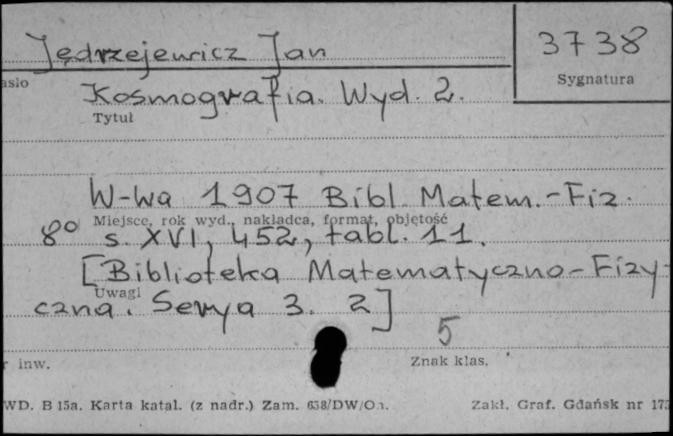 Jędrzejewicz Jan
3738
asło
Sygnatura
Kosmografia. Wyd. 2.
Tytuł
W-wa 1907 Bibl. Matem.-Fiz.
Miejsce, rok wyd., nakładca, format, objętość
8° s. XVI, 452, tabl. 11.
[Biblioteka Matematyczno-Fizy-
Uwagi
czna. Serya 3. 2]
5
r inw.
Znak klas.
WD. B 15a. Karta katal. (z nadr.) Zam. 658/DW/
Zakł. Graf. Gdańsk nr 175